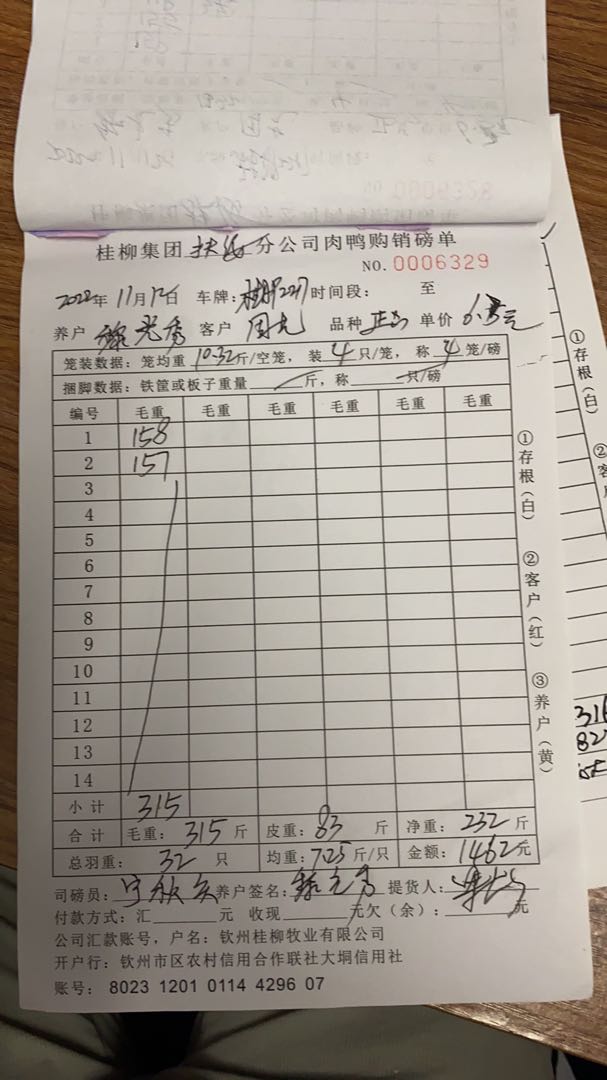 NO. 0006328
桂柳集团 分公司肉鸭购销磅单
NO. 0006329
2022年 11月17日 车牌: 时间段: 至
养户 客户 品种 单价
笼装数据: 笼均重 10.32斤/空笼, 装 4 只/笼, 称 4 笼/磅
捆脚数据: 铁筐或板子重量 斤, 称 只/磅
编号 毛重 毛重 毛重 毛重 毛重 毛重
1 158
2 157
3
4
5
6
7
8
9
10
11
12
13
14
小计 315
合计 毛重: 315 斤 皮重: 83 斤 净重: 232 斤
总羽重: 32 只 均重: 7.25 斤/只 金额: 1462元
司磅员: 养户签名: 提货人:
付款方式: 汇 元 收现 元欠(余): 元
公司汇款账号, 户名: 钦州桂柳牧业有限公司
开户行: 钦州市区农村信用合作联社大垌信用社
账号: 8023 1201 0114 4296 07
①存根(白)
②客户(红)
③养户(黄)
①存根(白)
②客户